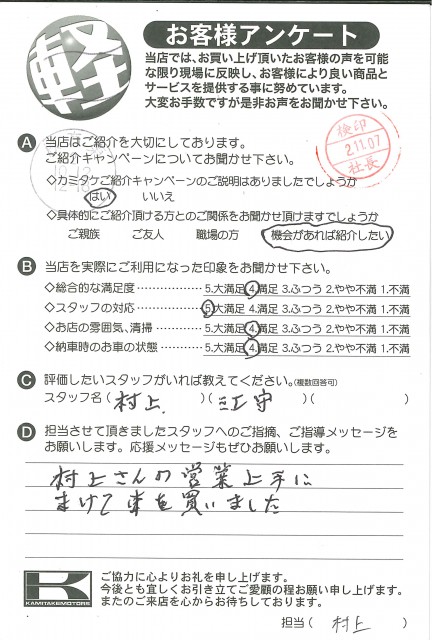 軽
お客様アンケート
当店では、お買い上げ頂いたお客様の声を可能
な限り現場に反映し、お客様により良い商品と
サービスを提供する事に努めています。
大変お手数ですが是非お声をお聞かせ下さい。
A 当店はご紹介を大切にしております。
ご紹介キャンペーンについてお聞かせ下さい。
検印
2.11.07
社長
◇カミタケご紹介キャンペーンのご説明はありましたでしょうか
はい いいえ
◇具体的にご紹介頂ける方とのご関係をお聞かせ頂けますでしょうか
ご親族 ご友人 職場の方 機会があれば紹介したい
B 当店を実際にご利用になった印象をお聞かせ下さい。
◇総合的な満足度 5.大満足 4.満足 3.ふつう 2.やや不満 1.不満
◇スタッフの対応 5.大満足 4.満足 3.ふつう 2.やや不満 1.不満
◇お店の雰囲気、清掃 5.大満足 4.満足 3.ふつう 2.やや不満 1.不満
◇納車時のお車の状態 5.大満足 4.満足 3.ふつう 2.やや不満 1.不満
C 評価したいスタッフがいれば教えてください。(複数回答可)
スタッフ名 ( 村上 ) ( 江守 ) ( )
D 担当させて頂きましたスタッフへのご指摘、ご指導メッセージを
お願いします。応援メッセージもぜひお願いします。
村上さんの営業上手に
まけて車を買いました
K
KAMITAKEMOTORS
ご協力に心よりお礼を申し上げます。
今後とも宜しくお引き立てご愛顧の程お願い申し上げます。
またのご来店を心からお待ちしております。
担当 ( 村上 )